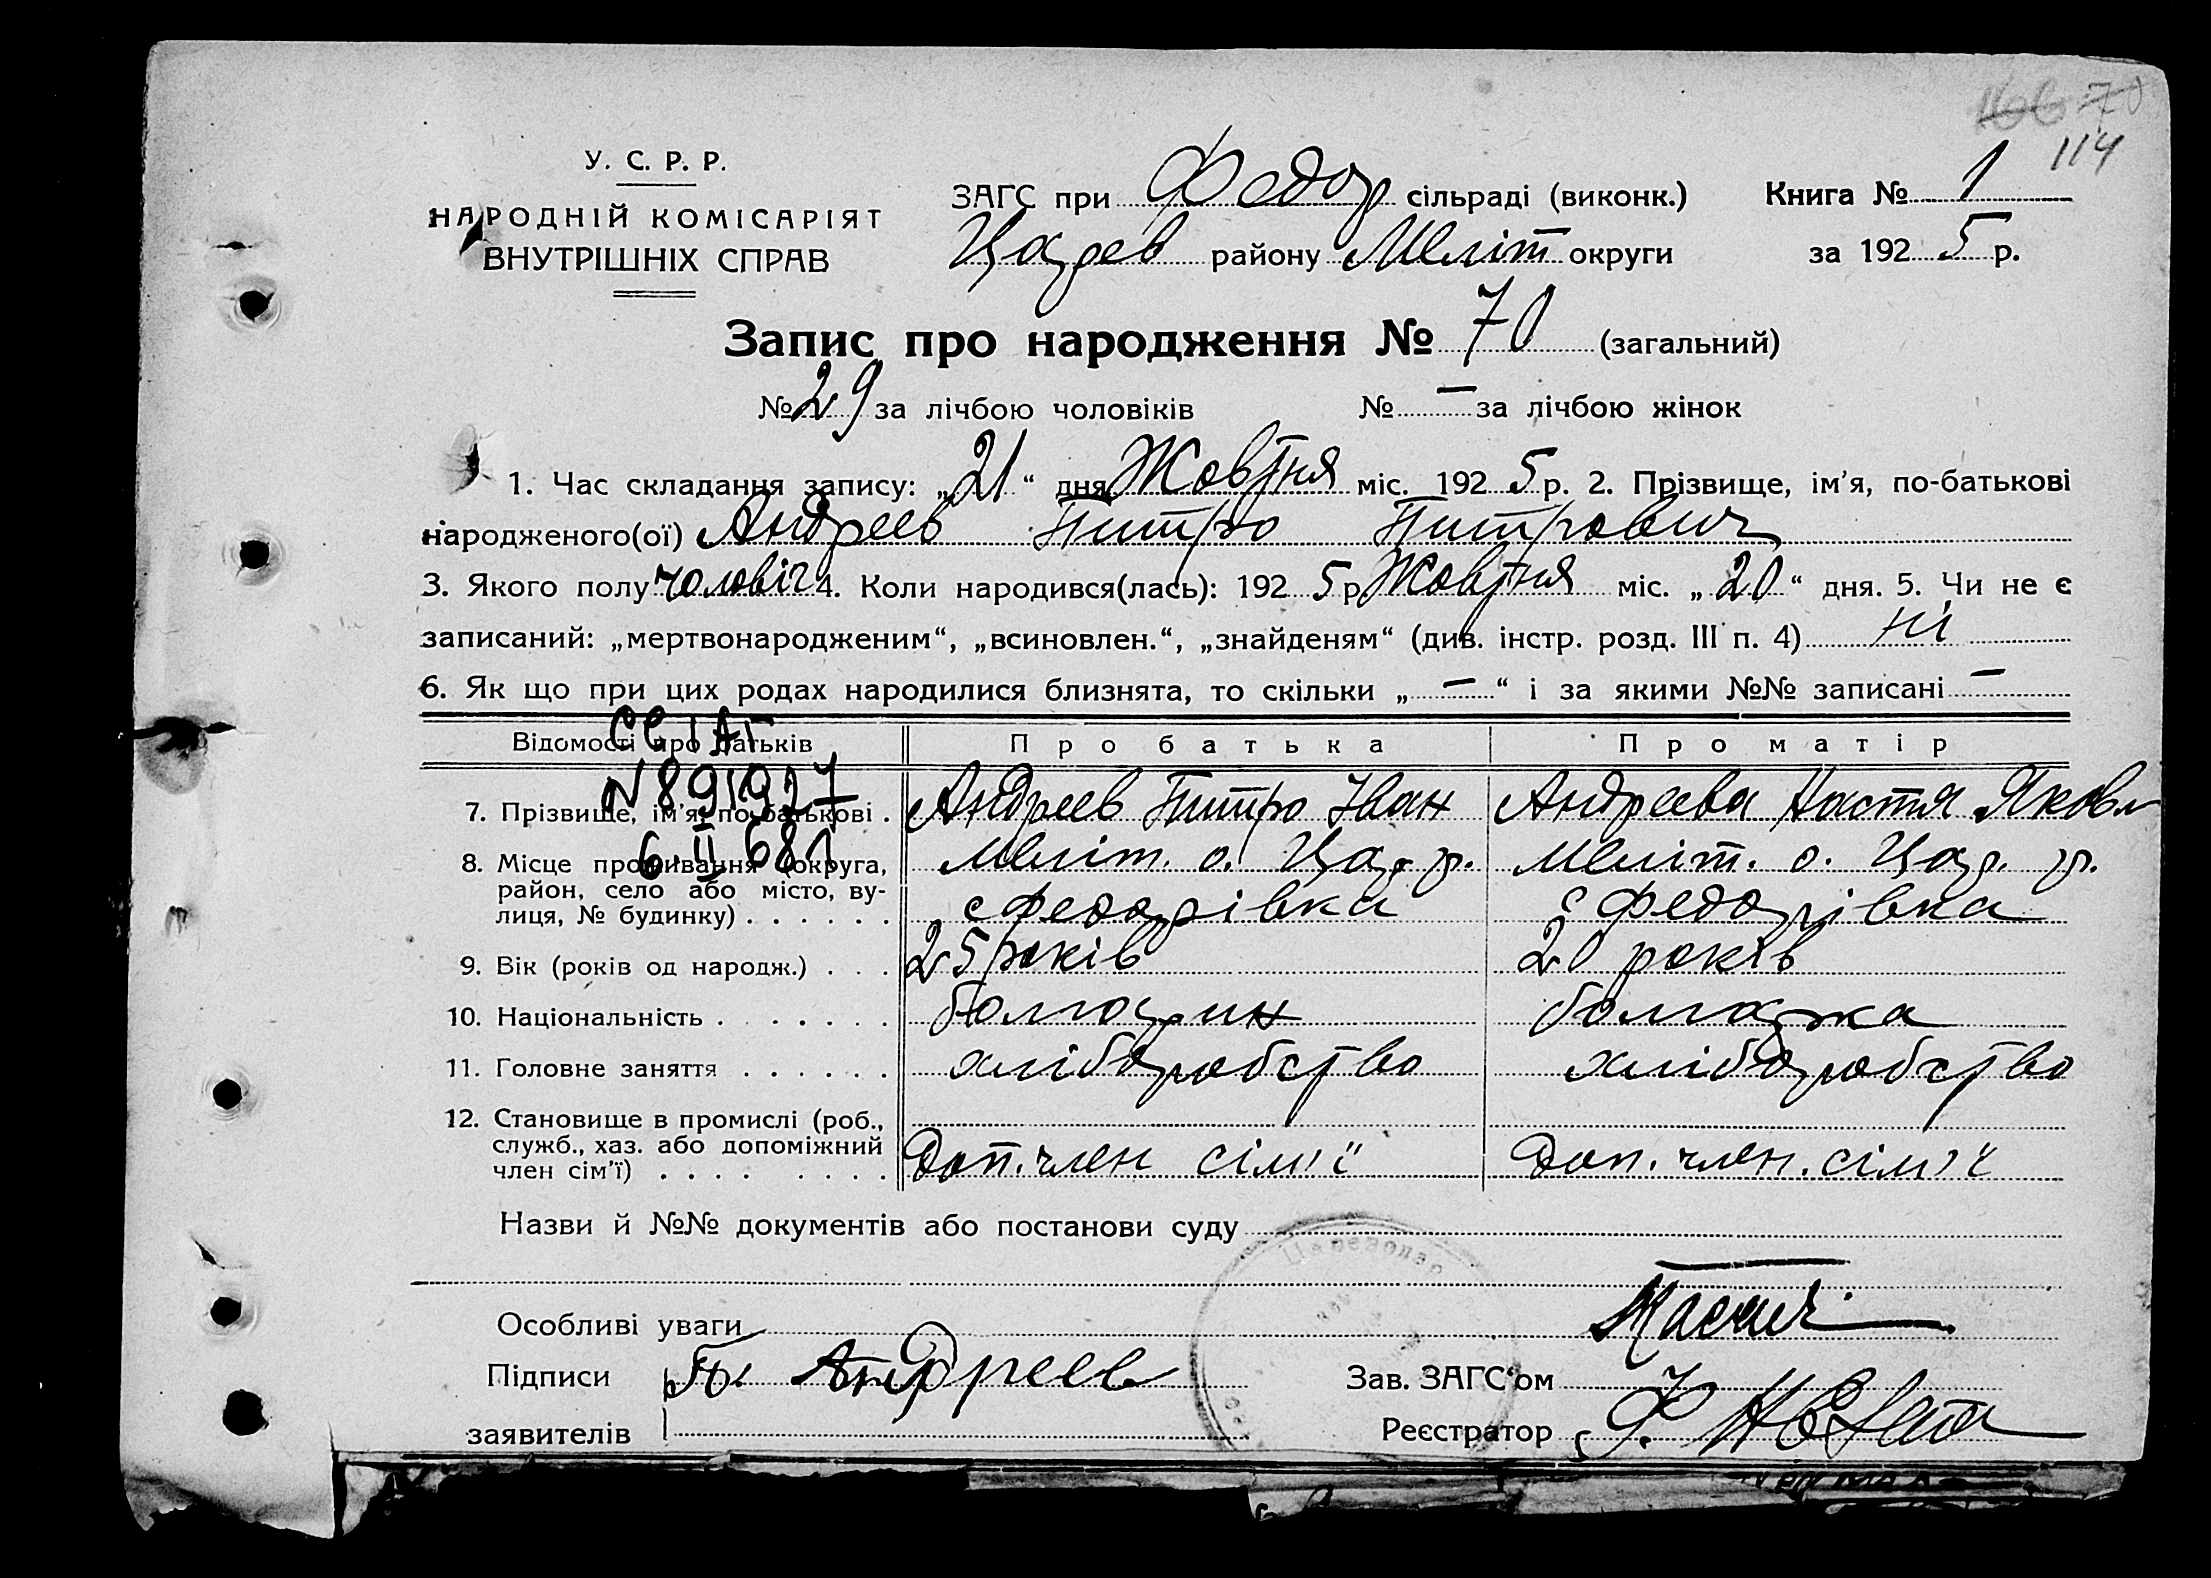 166 70
114
У. С. Р. Р.
НАРОДНІЙ КОМІСАРІЯТ
ВНУТРІШНІХ СПРАВ
ЗАГС при Федор сільраді (виконк.) Книга № 1
Царев району Меліт округи за 1925 р.
Запис про народження № 70 (загальний)
№ 29 за лічбою чоловіків № — за лічбою жінок
1. Час складання запису: „21“ дня Жовтня міс. 1925 р. 2. Прізвище, ім'я, по-батькові
народженого(ої) Андреев Питро Питрович
3. Якого полу чоловіч 4. Коли народився(лась): 1925 р. Жовтня міс. „20“ дня. 5. Чи не є
записаний: „мертвонародженим“, „всиновлен.“, „знайденям“ (див. інстр. розд. III п. 4) Ні
6. Як що при цих родах народилися близнята, то скільки „—“ і за якими №№ записані —
Відомості про батьків Про батька Про матір
N 891927
6.II 681
7. Прізвище, ім'я, по-батькові . Андреев Питро Іван Андреева Настя Яковл
8. Місце проживання (округа, Меліт. о. Цар. р. Меліт. о. Цар. р.
район, село або місто, ву-
лиця, № будинку) . . . . . . с Федорівка с Федорівка
9. Вік (років од народж.) . . . 25 років 20 років
10. Національність . . . . . . . болгарин болгарка
11. Головне заняття . . . . . . хліборобство хліборобство
12. Становище в промислі (роб.,
служб., хаз. або допоміжний
член сім'ї) . . . . . . . . Доп. член сім'ї Доп. член. сім'ї
Назви й №№ документів або постанови суду
Особливі уваги
Підписи Андреев Зав. ЗАГС'ом
заявителів Реєстратор